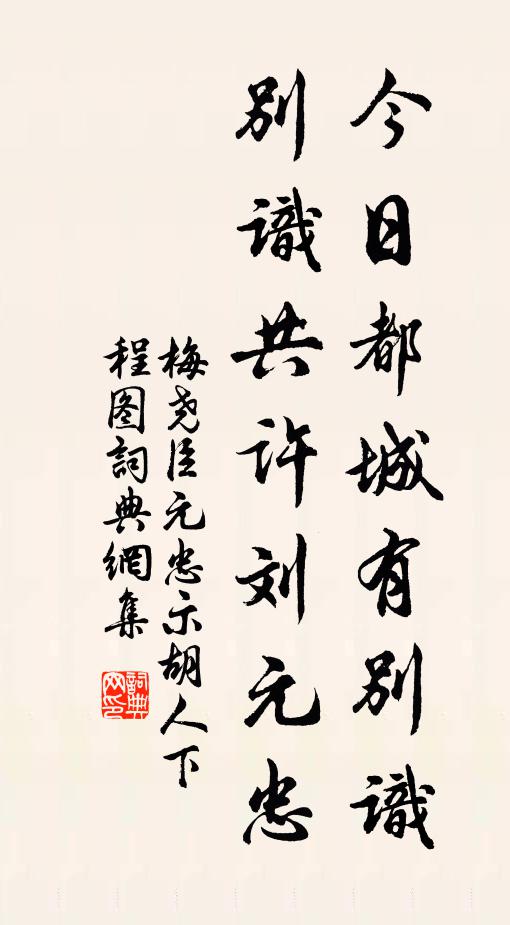 今日都城有别識
别識共许刘元忠
梅尧臣元忠示胡人下
程图詞典網集
詞典网印